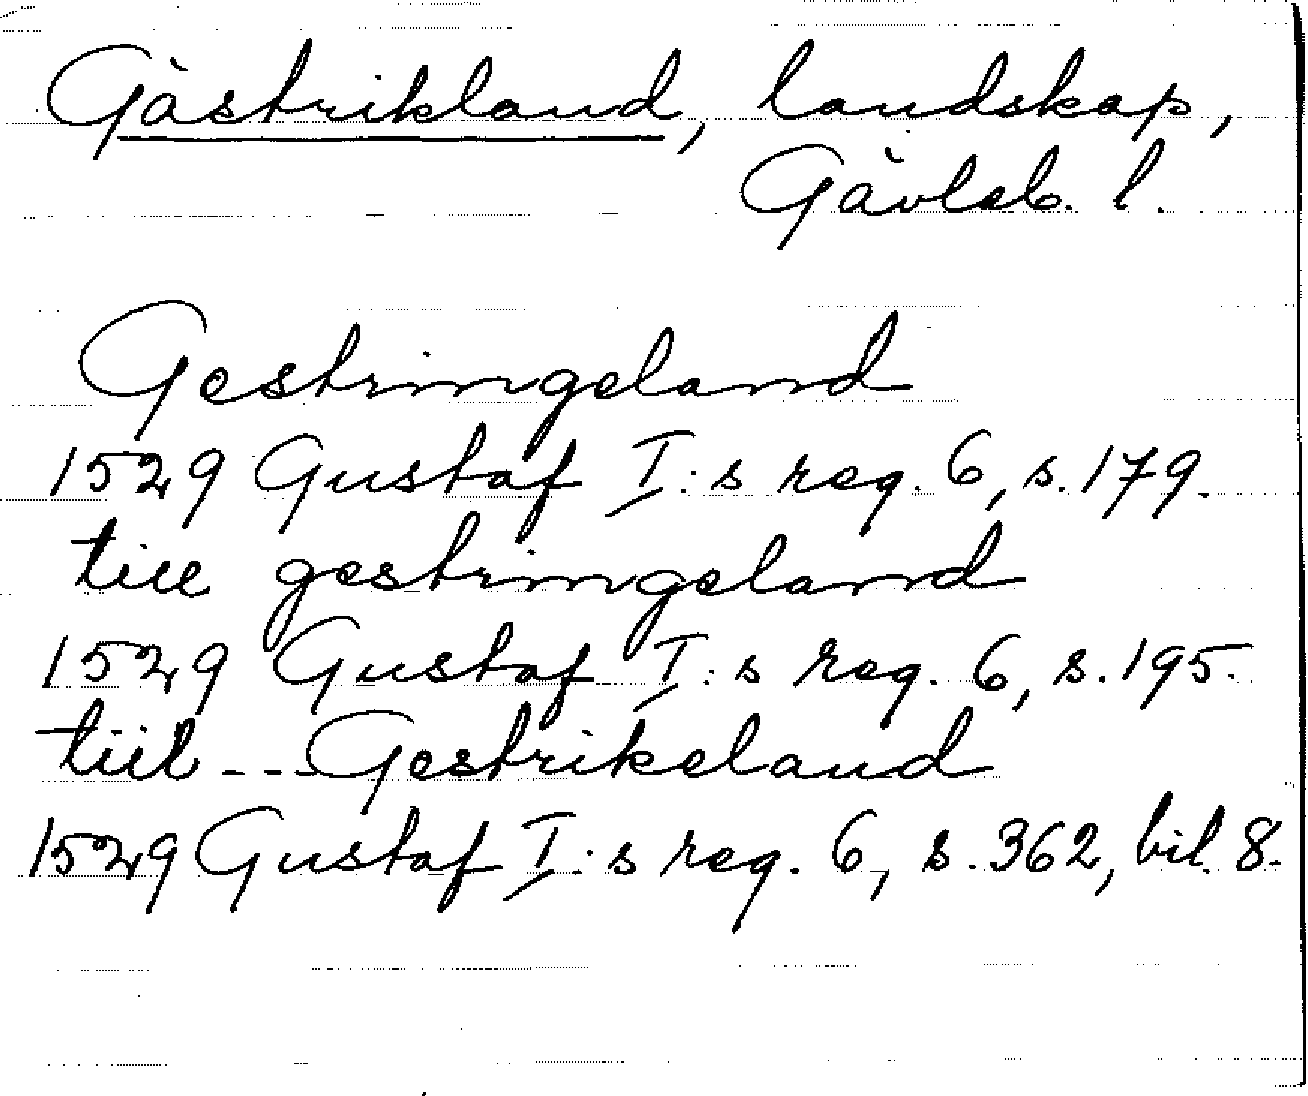 Gästrikland, landskap,
Gävleb. l.
Gestringeland
1529 Gustaf I:s reg. 6, s. 179.
till gestringeland
1529 Gustaf I:s reg. 6, s. 195.
tiil --- Gestrikeland
1529 Gustaf I:s reg. 6, s. 362, bil. 8.